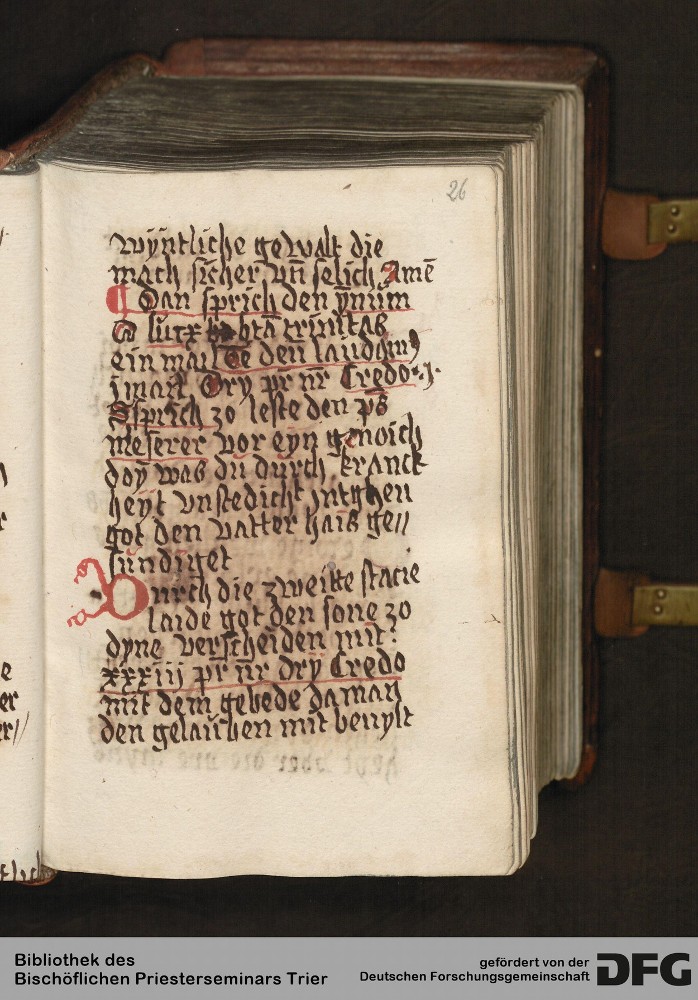 26
wyntliche gewalt die
mach sicher vn̄ selich Amē
Dan sprich den ȳnum
O lux btā trinitas
ein mail Te den laudamꝰ
j mail Dry pr̄ nr̄ Credo · j ·
Sprich zo leste den ps̄
meserer vor eyn genoich
doy was du durch kranck
heyt vnstedicht jntghen
got den vatter hais ge//
sundiget
Durch die zweitte stacie
laide got den sone zo
dyne verscheiden mit:
xxxiij pr̄ nr̄ dry Credo
mit dem gebede da man
den gelauben mit beuylt
Bibliothek des
Bischöflichen Priesterseminars Trier
gefördert von der
Deutschen Forschungsgemeinschaft
DFG